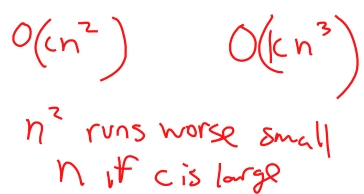 O(cn²) O(kn³)
n² runs worse small
n if c is large